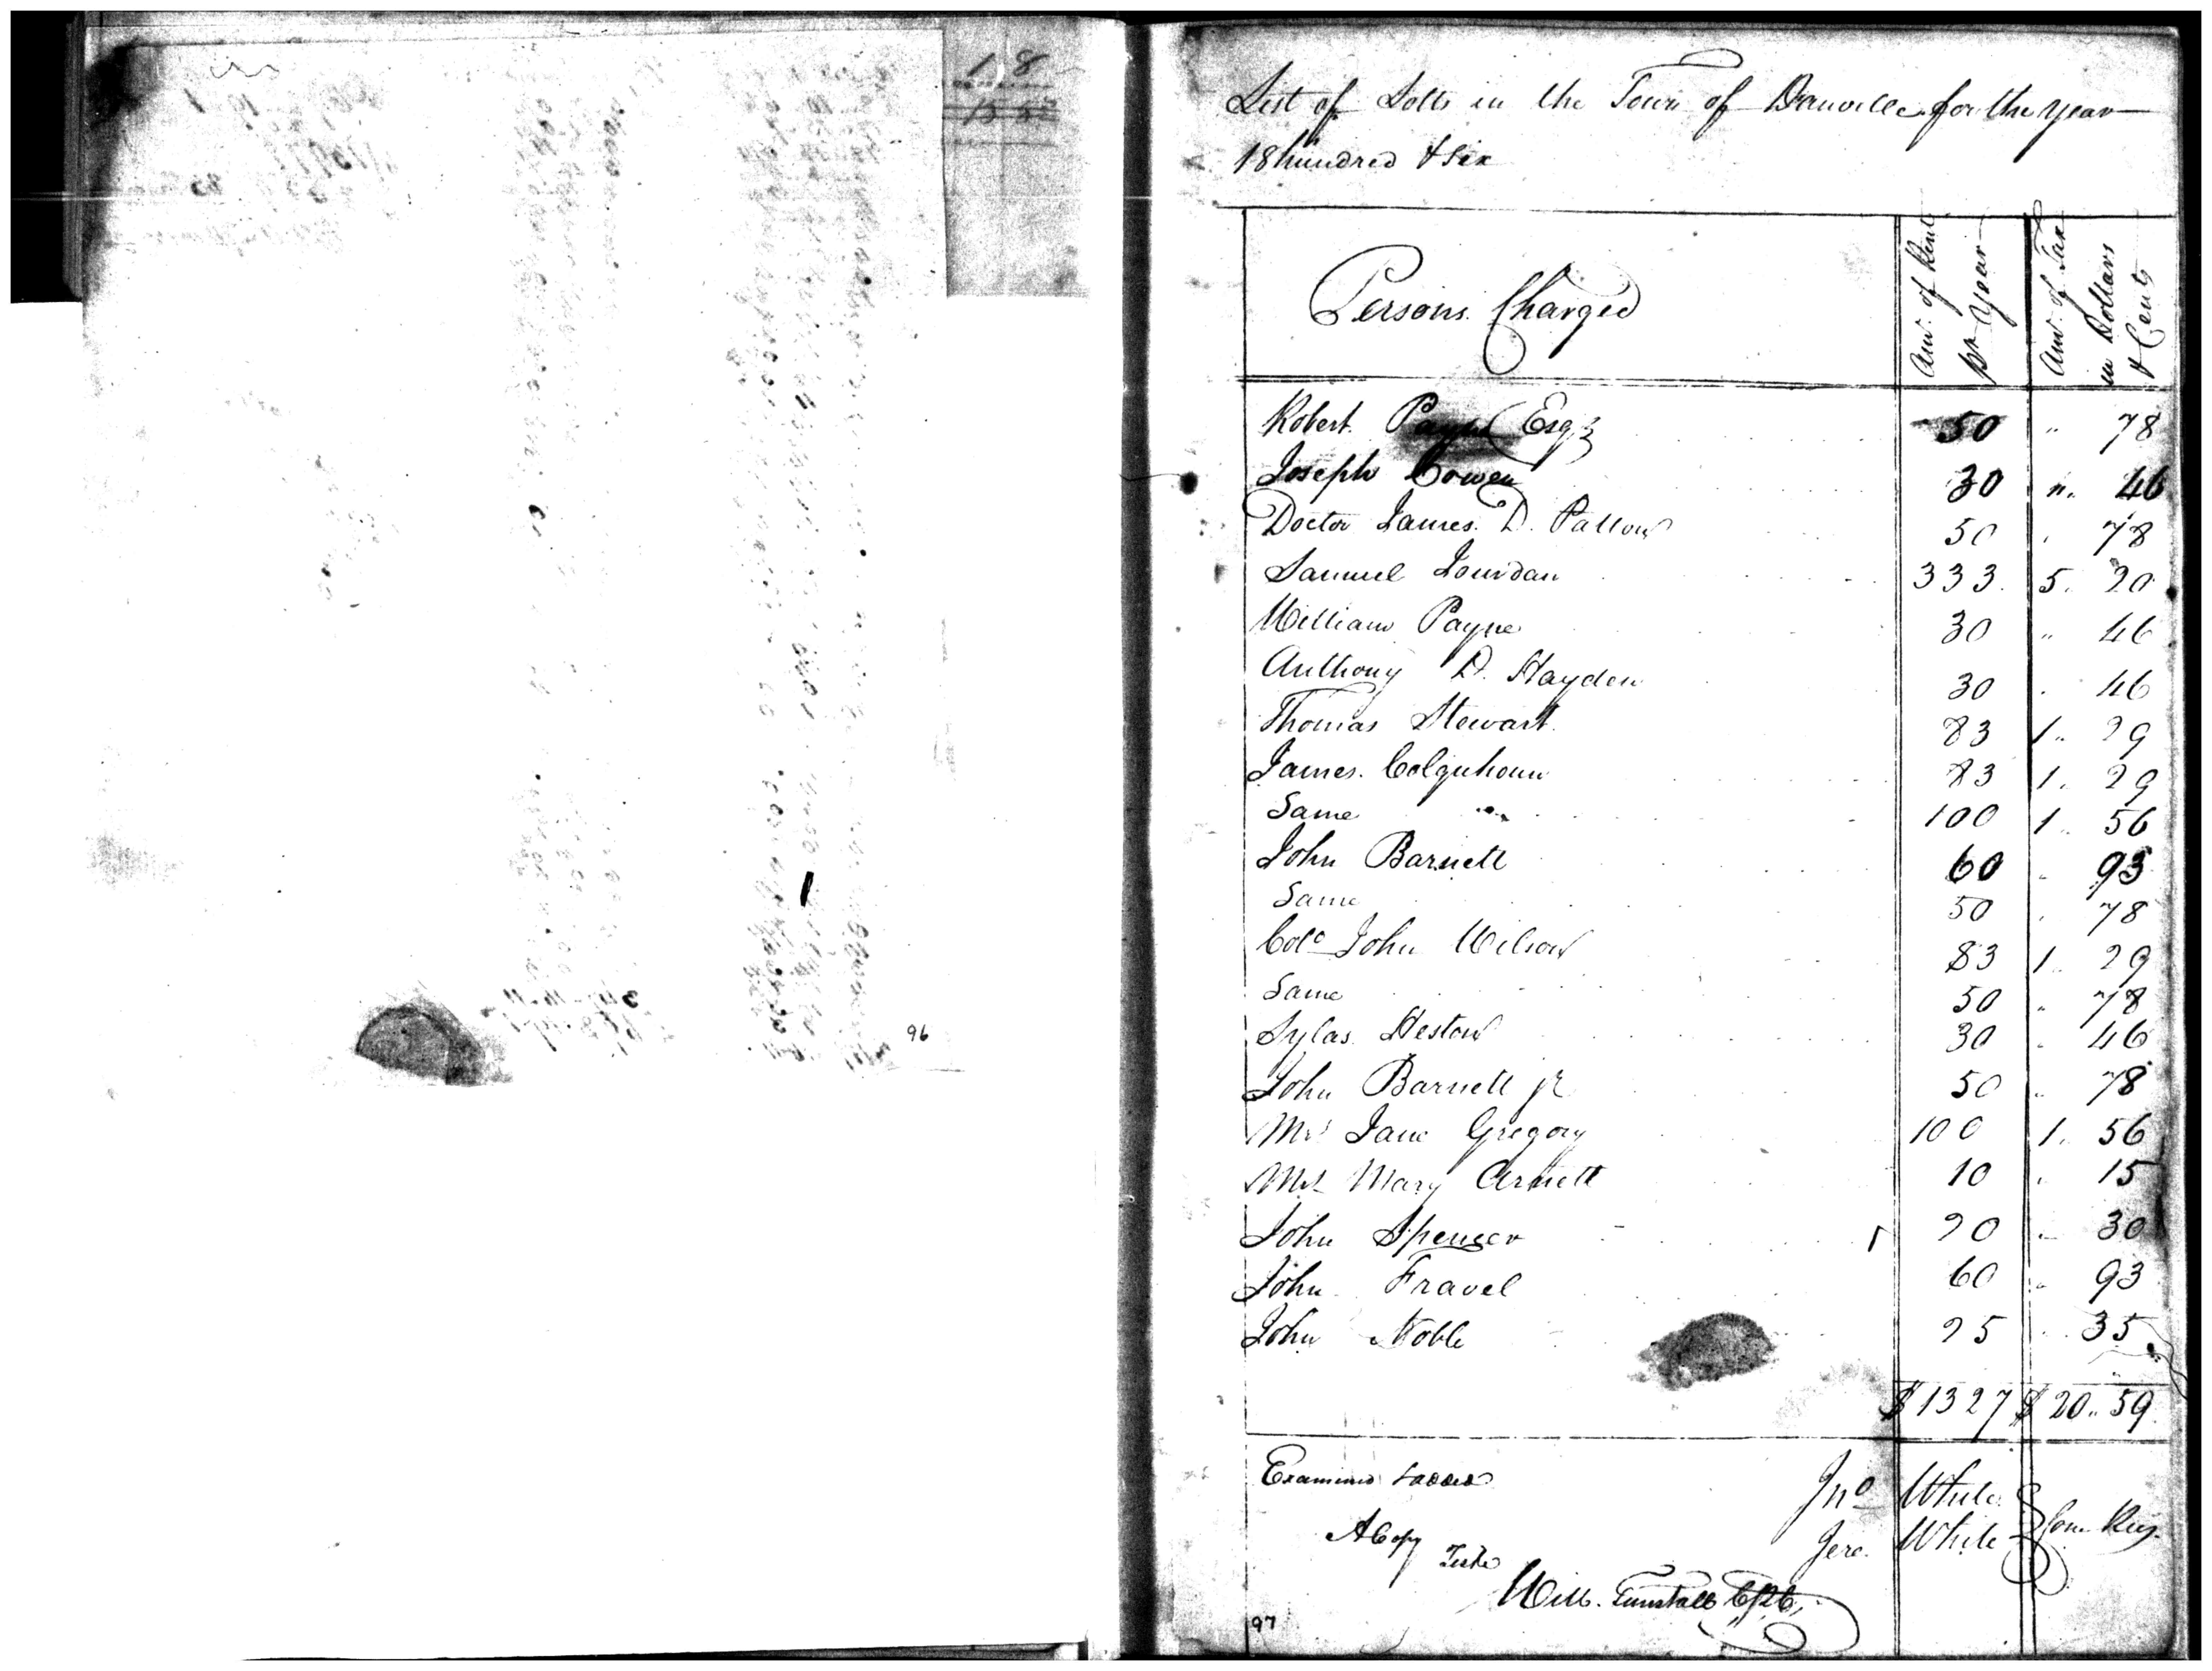 18
96
List of Lotts in the Town of Danville for the year
18 hundred & six
Persons Charged Amt. of Rent pr. Year Amt. of Tax in Dollars & Cents
Robert Payne Esqr 50 " 78
Joseph Cowen 30 ". 46
Doctor James. D. Patton 50 . 78
Samuel Jourdan 333. 5. 20
William Payne 30 " 46
Anthony D. Hayden 30 . 46
Thomas Stewart 83 1.. 29
James. Colquhoun 83 1. 29
Same 100 1. 56
John Barnett 60 . 93
Same 50 . 78
Colo John Wilson 83 1.. 29
Same 50 " 78
Sylas Heston 30 . 46
John Barnett jr 50 " 78
Mrs Jane Gregory 100 1. 56
Mrs Mary Arnett 10 . 15
John Spencer 20 " 30
John Fravel 60 " 93
John Noble 25 .. 35
$1327 $20..59
Examined
Jno White
Jere. White Com Rey.
A Copy
Teste
Will. Tunstall CPC
97